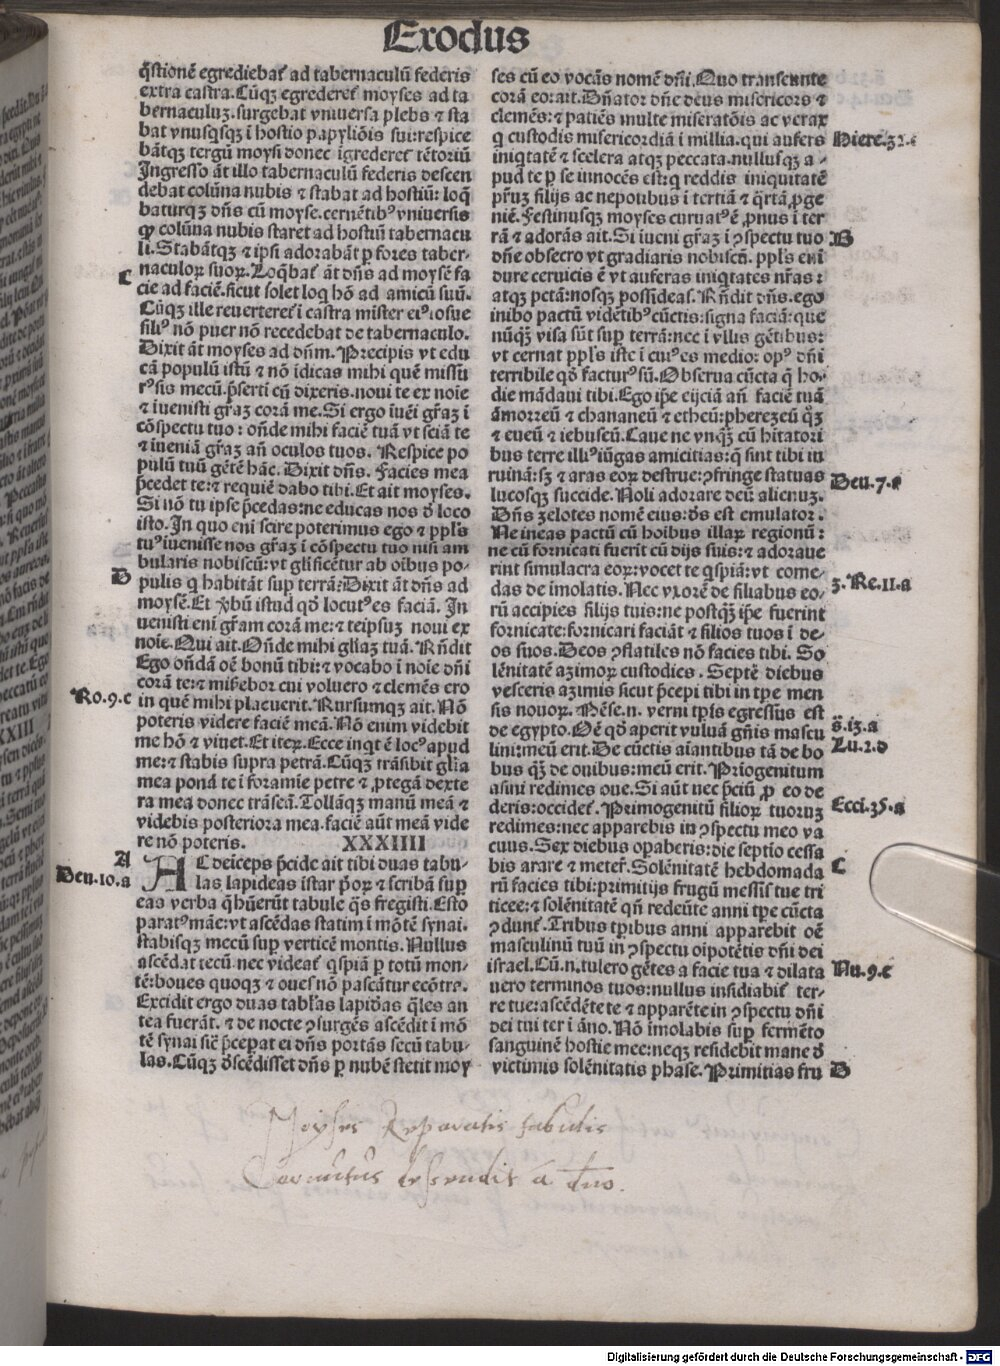 Exodus
q̄stionē egrediebat̄ ad tabernaculū federis
extra castra. Cūqꝫ egrederet̄ moyses ad ta
bernaculuꝫ. surgebat vniuersa plebs ⁊ sta
bat vnusqsqꝫ ī hostio papyliōis sui: respice
bātqꝫ tergū moysi donec īgrederet̄ tētoriū
Ingresso āt illo tabernaculū federis descen
debat colūna nubis ⁊ stabat ad hostiū: loq̄
baturqꝫ dn̄s cū moyse. cernētibꝰ vniuersis
ꝙ colūna nubis staret ad hostiū tabernacu
li. Stabātqꝫ ⁊ ipsi adorabāt ꝑ fores taber-
naculoꝝ suoꝝ. Loq̄bat̄ āt dn̄s ad moysē fa
C
cie ad faciē. sicut solet loq̄ hō ad amicū suū.
Cūqꝫ ille reuerteret̄ ī castra mister eiꝰ iosue
filiꝰ nō puer nō recedebat de tabernaculo.
Dixit āt moyses ad dn̄m. Precipis vt edu
cā populū istū ⁊ nō īdicas mihi quē missu
rꝰ sis mecū. p̄serti cū dixeris. noui te ex noīe
⁊ iuenisti gr̄aꝫ corā me. Si ergo iuēi gr̄aꝫ ī
cōspectu tuo: on̄de mihi faciē tuā vt sciā te
⁊ iueniā gr̄aꝫ an̄ oculos tuos. Respice po
pulū tuū gētē hāc. Dixit dn̄s. Facies mea
p̄cedet te: ⁊ requiē dabo tibi. Et ait moyses.
Si nō tu ipse p̄cedas: ne educas nos d̄ loco
isto. In quo eni scire poterimus ego ⁊ ppl̄s
tuꝰ iuenisse nos gr̄aꝫ ī cōspectu tuo nisi am
bularis nobiscū: vt gl̄ificēt̄ ab oībus po-
B
pulis q̄ habitāt suꝑ terrā: Dixit āt dn̄s ad
moysē. Et ꝟbū istud qd̄ locutꝰ es faciā. In
uenisti eni gr̄am corā me: ⁊ teipsuꝫ noui ex
noīe. Qui ait. On̄de mihi gl̄iaꝫ tuā. Rn̄dit
Ego on̄dā oē bonū tibi: ⁊ vocabo ī noīe dn̄i
corā te: ⁊ misebor cui voluero ⁊ clemēs ero
Ro.9.c
in quē mihi placuerit. Rursumqꝫ ait. Nō
poteris videre faciē meā. Nō enim videbit
me hō ⁊ viuet. Et iteꝝ. Ecce inqt ē locꝰ apud
me: ⁊ stabis supra petrā. Cūqꝫ trāsibit gl̄ia
mea ponā te ī foramīe petre ⁊ ꝓtegā dexte
ra mea donec trāseā. Tollāqꝫ manū meā ⁊
videbis posteriora mea. faciē aūt meā vide
re nō poteris. XXXIIII
A
AC deīceps p̄cide ait tibi duas tabu-
Deu.10.a
las lapideas īstar p̄oꝝ ⁊ scribā suꝑ
eas verba q̄ hūerūt tabule q̄s fregisti. Esto
paratꝰ māe: vt ascēdas statim ī mōtē synai.
stabisqꝫ mecū suꝑ verticē montis. Nullus
ascēdat tecū. nec videat̄ qspiā ꝑ totū mon-
tē: boues quoqꝫ ⁊ oues nō pascātur ecōtra.
Excidit ergo duas tabl̄as lapidas q̄les an
tea fuerāt. ⁊ de nocte ꝯsurgēs ascēdit ī mō
tē synai sic̄ p̄cepat ei dn̄s portās secū tabu-
las. Cūqꝫ d̄scēdisset dn̄s ꝑ nubē stetit moy
ses cū eo vocās nomē dn̄i. Quo transeunte
corā eo: ait. Dn̄ator dn̄e deus misericors ⁊
clemēs: ⁊ patiēs multe miseratōis ac verax
Hiere.32.c
q̄ custodis misericordiā ī millia. qui aufers
iniqtatē ⁊ scelera atqꝫ peccata. nullusqꝫ a-
pud te ꝑ se innocēs est: q̄ reddis iniquitatē
pr̄uꝫ filijs ac nepotibus ī tertiā ⁊ q̄rtā ꝓge
niē. Festinusqꝫ moyses curuatꝰ ē ꝓnus ī ter
B
rā ⁊ adorās ait. Si iueni gr̄aꝫ ī ꝯspectu tuo
dn̄e obsecro vt gradiaris nobiscū. ppl̄s eni
dure ceruicis ē vt auferas iniqtates nr̄as:
atqꝫ pctā: nosqꝫ possideas. Rn̄dit dn̄s. ego
inibo pactū vidētibꝰ cūctis: signa faciā: que
nūqꝫ visa sūt suꝑ terrā: nec ī vllis gētibus:
vt cernat ppl̄s iste ī cuiꝰ es medio: opꝰ dn̄i
terribile qd̄ facturꝰ sū. Obserua cūcta q̄ ho-
die mādaui tibi. Ego ip̄e eijciā an̄ faciē tuā
amorreū ⁊ chananeū ⁊ etheū: pherezeū q̄ꝫ
⁊ eueū ⁊ iebuseū. Caue ne vnqꝫ cū hitatori
bus terre illiꝰ iūgas amicitias: q̄ sint tibi in
ruinā: sꝫ ⁊ aras eoꝝ destrue: ꝯfringe statuas
Deu.7.e
lucosqꝫ succide. Noli adorare deū alienuꝫ.
Dn̄s zelotes nomē eius: d̄s est emulator.
Ne ineas pactū cū hoībus illaꝝ regionū:
ne cū fornicati fuerit cū dijs suis: ⁊ adoraue
rint simulacra eoꝝ: vocet te qspiā: vt come-
3.Re.11.a
das de imolatis. Nec vxorē de filiabus eo-
rū accipies filijs tuis: ne postqꝫ ip̄e fuerint
fornicate: fornicari faciāt ⁊ filios tuos ī de-
os suos. Deos ꝯflatiles nō facies tibi. So
lēnitatē azimoꝝ custodies. Septē diebus
vesceris azimis sicut p̄cepi tibi in tp̄e men
sis nouoꝝ. Mēse.n. verni tp̄is egressus est
s̄.13.a
de egypto. Oē qd̄ aperit vuluā gn̄is mascu
Lu.2.d
lini: meū erit. De cūctis aiantibus tā de bo
bus q̄ꝫ de ouibus: meū erit. Priogenitum
asini redimes oue. Si aūt nec p̄ciū ꝓ eo de
Ecci.35.a
deris: occidet̄. Primogenitū filioꝝ tuoruꝫ
redimes: nec apparebis in ꝯspectu meo va
cuus. Sex diebus opaberis: die septio cessa
C
bis arare ⁊ meter̄. Solēnitatē hebdomada
rū facies tibi: primitijs frugū messis tue tri
ticee: ⁊ solēnitatē qn̄ redeūte anni tp̄e cūcta
ꝯdunt̄. Tribus tp̄ibus anni apparebit oē
masculinū tuū in ꝯspectu oīpotētis dn̄i dei
Nu.9.c
israel. Cū.n. tulero gētes a facie tua ⁊ dilata
uero terminos tuos: nullus insidiabit̄ ter-
re tue: ascēdēte te ⁊ apparēte in ꝯspectu dn̄i
dei tui ter ī āno. Nō imolabis suꝑ fermēto
sanguinē hostie mee: neqꝫ residebit mane d̄
D
victimis solēnitatis phase. Primitias fru
Moyses Reparatis tabulis
Cornutus descendit a dno.